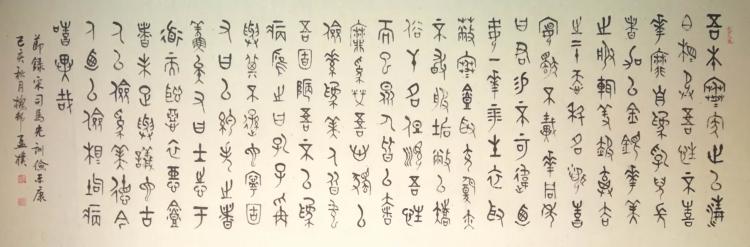 吾本寒家世以清
白相承吾性不喜
華靡自為乳兒長
者加以金銀華美
之服輒羞赧棄去
之二十忝科名聞喜
宴獨不戴華同年
曰君賜不可違乃
簪一華平生衣取
蔽寒食取充腹亦
不敢服垢敝以矯
俗干名但順吾性
而已眾人皆以奢
靡為榮吾心獨以
儉素為美人皆嗤
吾固陋吾不以為
病應之曰孔子稱
與其不遜也寧固
又曰以約失之者
鮮矣又曰士志于
道而恥惡衣惡食
者未足與議也古
人以儉為美德今
人乃以儉相詬病
嘻異哉
節錄宋司馬光訓儉示康
己亥秋月 孟